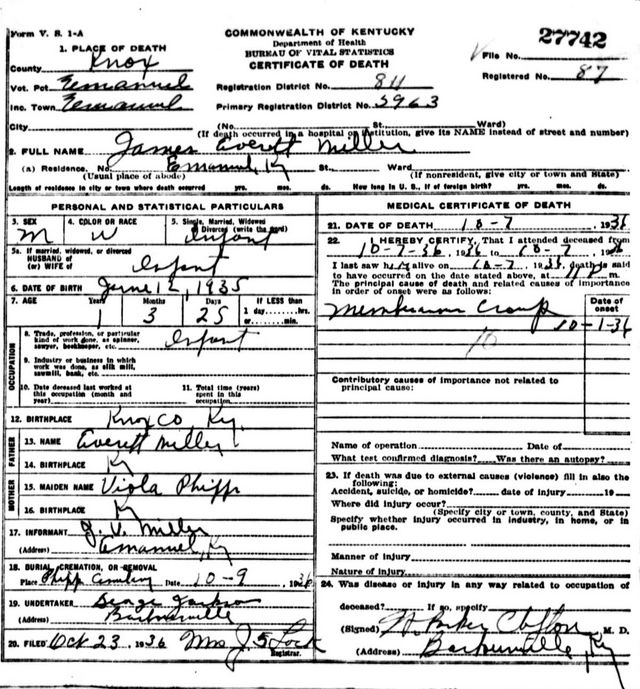 Form V. S. 1-A
COMMONWEALTH OF KENTUCKY
Department of Health
BUREAU OF VITAL STATISTICS
CERTIFICATE OF DEATH
27742
File No.
Registered No. 87
1. PLACE OF DEATH
County Knox
Vot. Pct. Emanuel
Inc. Town Emanuel
Registration District No. 811
Primary Registration District No. 5963
City (No. St. Ward)
(If death occurred in a hospital or institution, give its NAME instead of street and number)
2. FULL NAME James Everett Miller
(a) Residence, No. Emanuel, Ky St. Ward
(Usual place of abode) (If nonresident, give city or town and State)
Length of residence in city or town where death occurred yrs. mos. ds. How long in U. S., if of foreign birth? yrs. mos. ds.
PERSONAL AND STATISTICAL PARTICULARS
3. SEX 4. COLOR OR RACE 5. Single, Married, Widowed
Divorced (write the word)
M W Infant
5a. If married, widowed, or divorced
HUSBAND of
(or) WIFE of Infant
6. DATE OF BIRTH June 12, 1935
7. AGE Years Months Days If LESS than
1 3 25 1 day, hrs.
or min.
OCCUPATION
8. Trade, profession, or particular
kind of work done, as spinner,
sawyer, bookkeeper, etc. Infant
9. Industry or business in which
work was done, as silk mill,
sawmill, bank, etc.
10. Date deceased last worked at
this occupation (month and
year)
11. Total time (years)
spent in this
occupation
12. BIRTHPLACE Knox Co, Ky.
FATHER
13. NAME Everett Miller
14. BIRTHPLACE Ky
MOTHER
15. MAIDEN NAME Viola Phipps
16. BIRTHPLACE Ky
17. INFORMANT J. V. Miller
(Address) Emanuel, Ky
18. BURIAL, CREMATION, OR REMOVAL
Place Phipps Cemetery Date 10-9, 1936
19. UNDERTAKER George Jackson
(Address) Barbourville
20. FILED Oct 23, 1936 Mrs J. S. Lock
Registrar.
MEDICAL CERTIFICATE OF DEATH
21. DATE OF DEATH 10-7 1936
22. I HEREBY CERTIFY, That I attended deceased from
10-7-36, 1936 to 10-7, 1936
I last saw him alive on 10-7, 1936, death is said
to have occurred on the date stated above, at m.
The principal cause of death and related causes of importance
in order of onset were as follows:
Date of
onset
Membranous Croup
10-1-36
10
Contributory causes of importance not related to
principal cause:
Name of operation Date of
What test confirmed diagnosis? Was there an autopsy?
23. If death was due to external causes (violence) fill in also the
following:
Accident, suicide, or homicide? date of injury 19
Where did injury occur?
(Specify city or town, county, and State)
Specify whether injury occurred in industry, in home, or in
public place.
Manner of injury
Nature of injury
24. Was disease or injury in any way related to occupation of
deceased? If so, specify
(Signed) Parker M. D.
(Address) Barbourville, Ky